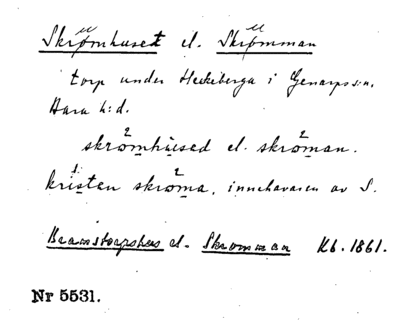 Skrømhuset el. Skrømman
torp under Heckeberga i Genarps s:n,
Bara h:d.
skrømhused el. skrøman.
kristen skrøma, innehavaren av S.
Bramstorpshus el. Skromman Kb. 1861.
Nr 5531.